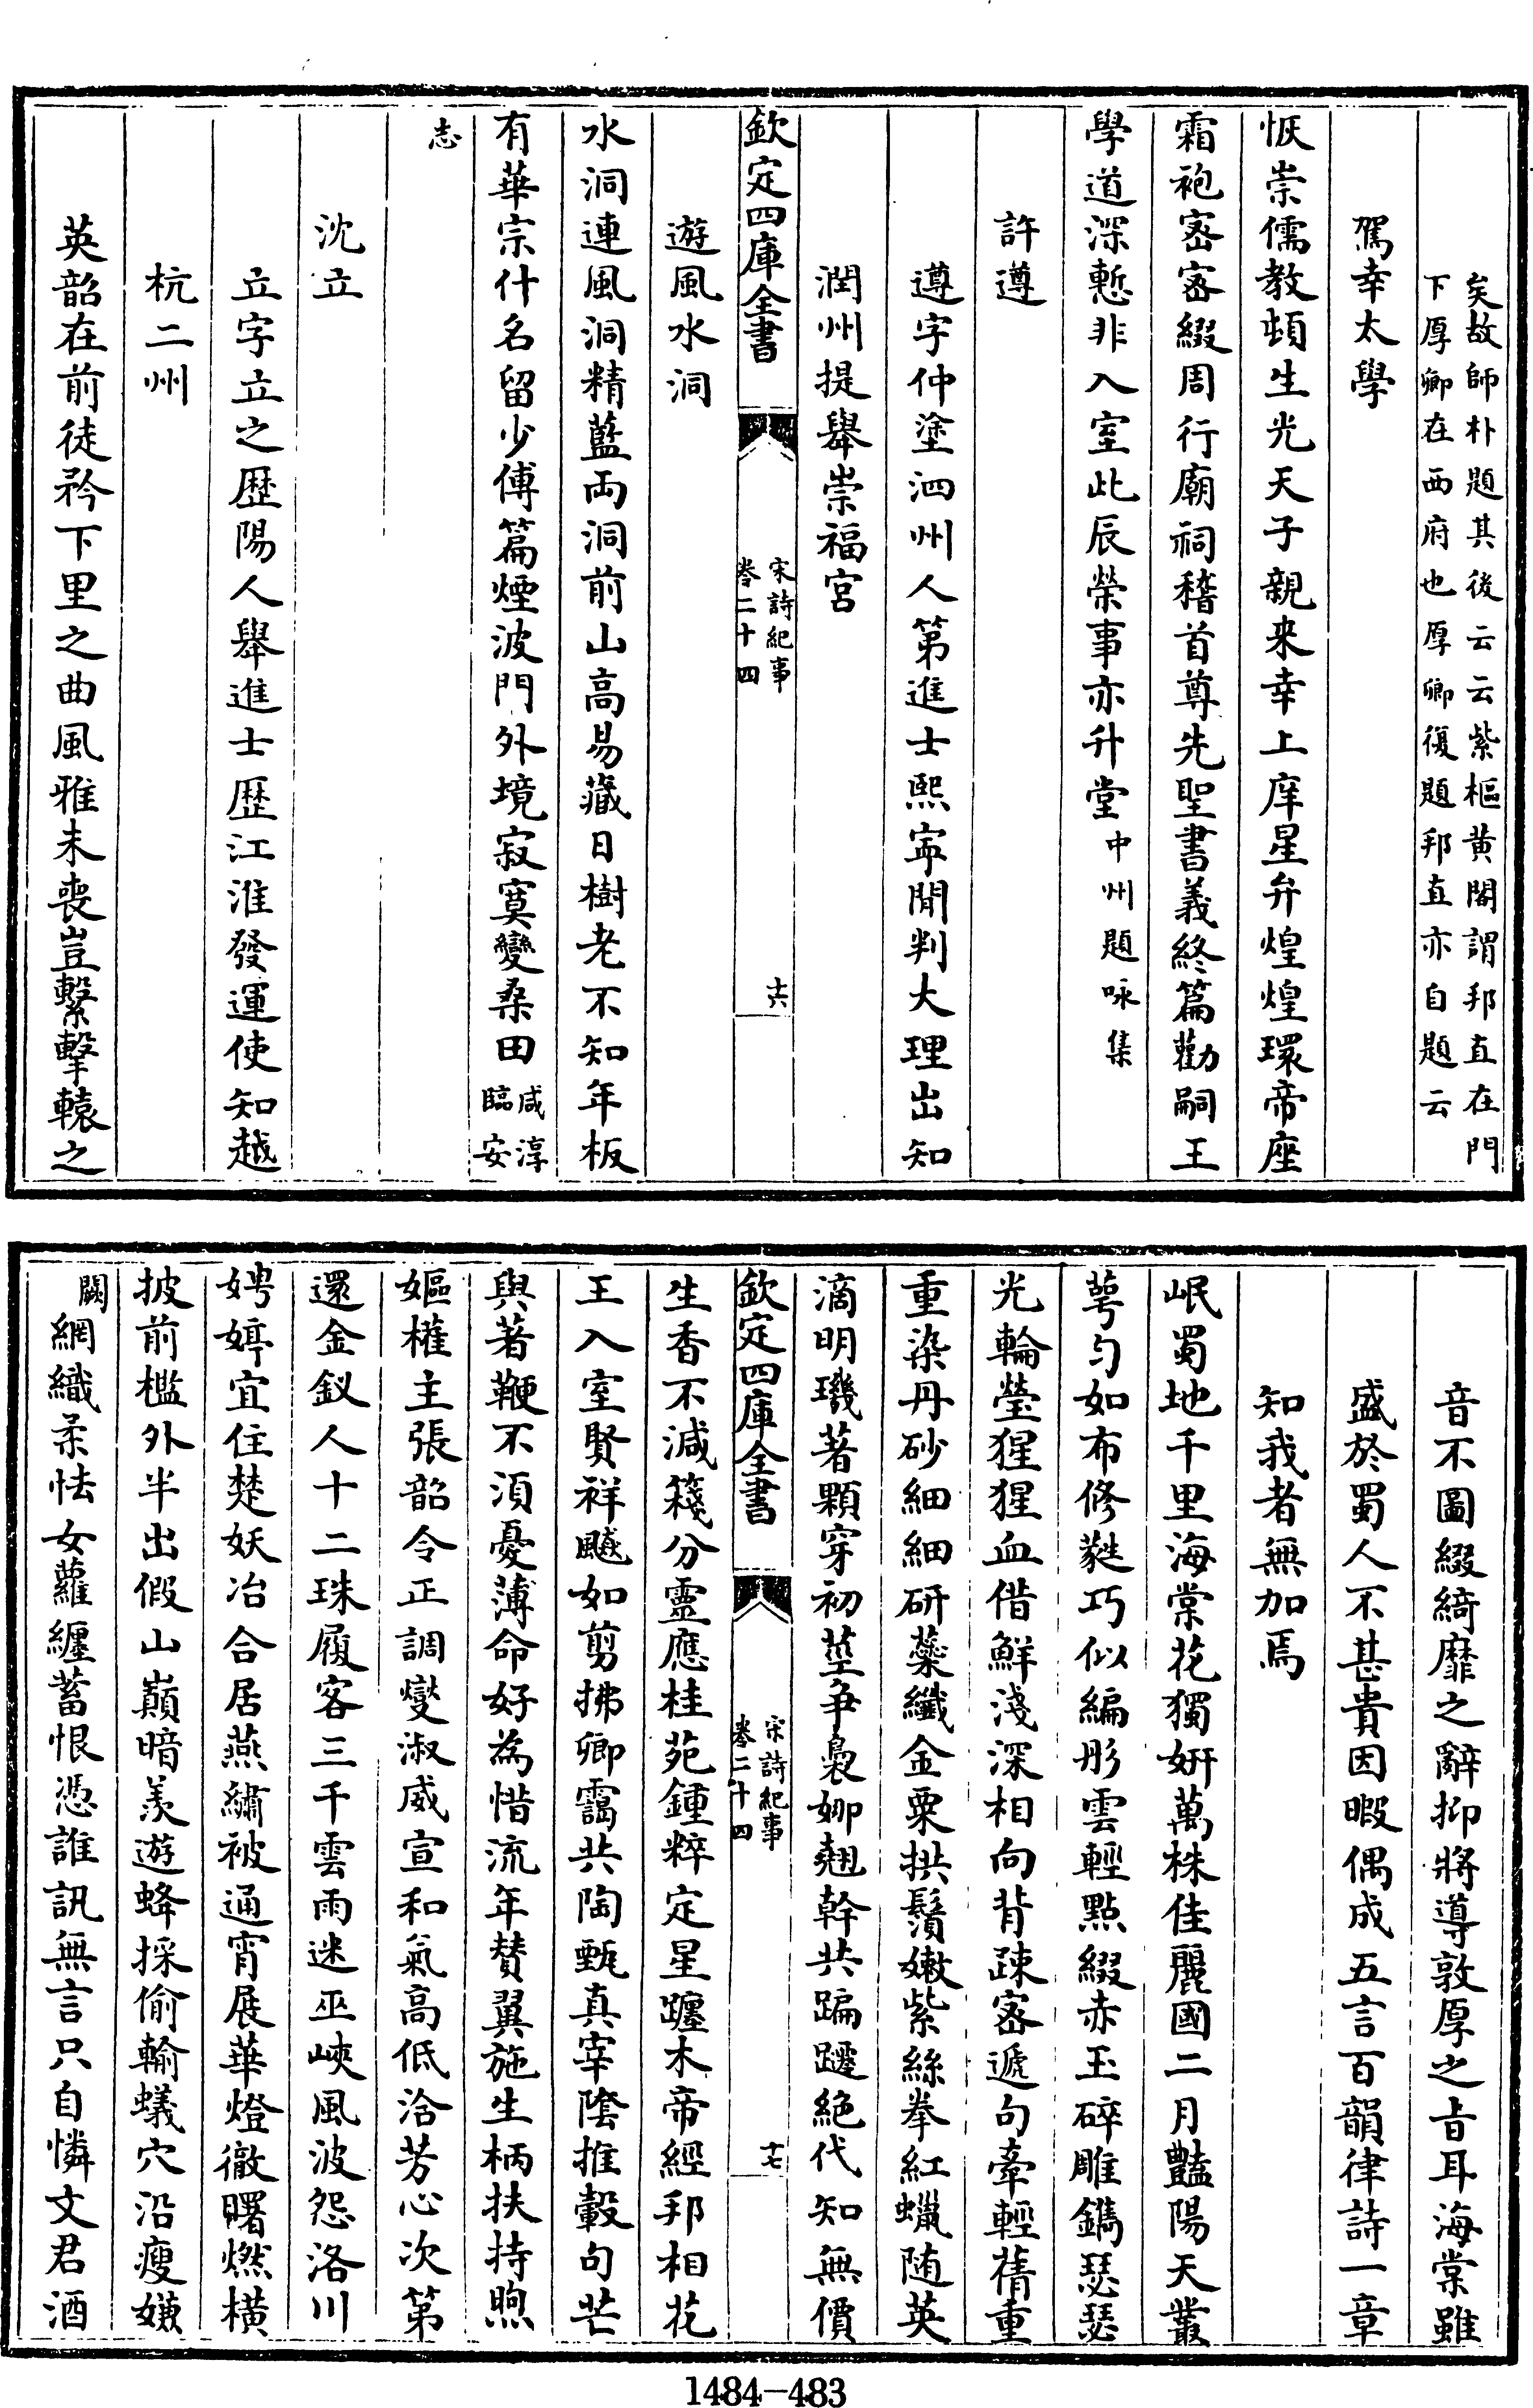 矣故師朴題其後云云紫樞黄閣謂邦直在門
下厚卿在西府也厚卿復題邦直亦自題云
駕幸太學
恢崇儒教頓生光天子親来幸上庠星弁煌煌環帝座
霜袍宻宻綴周行廟祠稽首尊先聖書義終篇勸嗣王
學道深慙非入室此辰榮事亦升堂中州題咏集
許遵
遵字仲塗泗州人第進士熙寜間判大理出知
潤州提舉崇福宫
欽定四庫全書
宋詩紀事
卷二十四
十六
遊風水洞
水洞連風洞精藍両洞前山高易藏日樹老不知年板
有華宗什名留少傅篇煙波門外境寂寞變桑田咸淳
臨安
志
沈立
立字立之歴陽人舉進士歴江淮發運使知越
杭二州
英韶在前徒矜下里之曲風雅未喪豈繫擊轅之
音不圖綴綺靡之辭抑將導敦厚之㫖耳海棠雖
盛於蜀人不甚貴因暇偶成五言百韻律詩一章
知我者無加焉
岷蜀地千里海棠花獨妍萬株佳麗國二月豔陽天叢
萼勻如布修蕤巧似編彤雲輕點綴赤玉碎雕鐫瑟瑟
光輪瑩猩猩血借鮮淺深相向背疎宻遞勾牽輕蒨重
重染丹砂細細研蘂纖金粟拱鬚嫩紫絲拳紅蠟随英
滴明璣著顆穿初莖争裊娜翹幹共蹁躚絶代知無價
欽定四庫全書
宋詩紀事
卷二十四
十七
生香不減箋分靈應桂苑鍾粹定星躔木帝經邦相花
王入室賢祥飈如剪拂卿靄共陶甄真宰陰推轂句芒
與著鞭不湏憂薄命好為惜流年賛翼施生柄扶持煦
嫗權主張韶令正調燮淑威宣和氣高低洽芳心次第
還金釵人十二珠履客三千雲雨迷巫峽風波怨洛川
娉婷宜住楚妖冶合居燕繡被通宵展華燈徹曙燃横
披前檻外半出假山巔暗羨遊蜂採偷輸蟻穴沿瘦嫌
闕網織柔怯女蘿纏蓄恨憑誰訊無言只自憐文君酒
1484—483